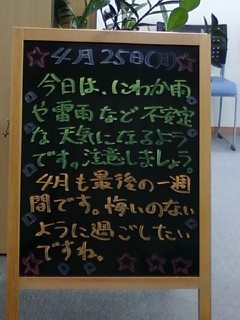 4月25日(月)
今日は、にわか雨
や雷雨など不安定
な天気になるよう
です。注意しましょう。
4月も最後の一週
間です。悔いのない
ように過ごしたい
ですね。